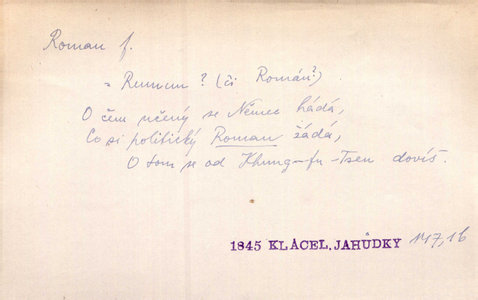 Roman f.
= Rumun? (či Román?).
O čem učený se Němec hádá,
Co si politický Roman žádá,
O tom se od Khung-fu-Tsen dovíš.
1845 KLÁCEL, JAHŮDKY 147,16